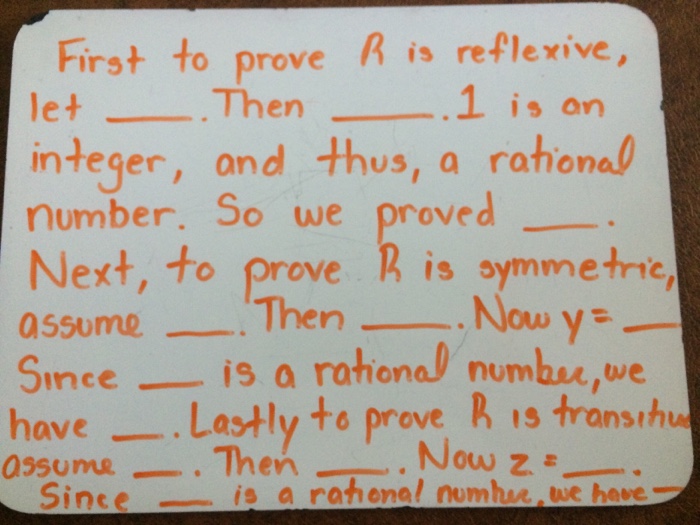 First to prove R is reflexive,
let ____. Then ____. 1 is an
integer, and thus, a rational
number. So we proved ____.
Next, to prove R is symmetric,
assume ____. Then ____. Now y = ____
Since ____ is a rational number, we
have ____. Lastly to prove R is transitive
assume ____. Then ____. Now z = ____.
Since ____ is a rational number, we have ____